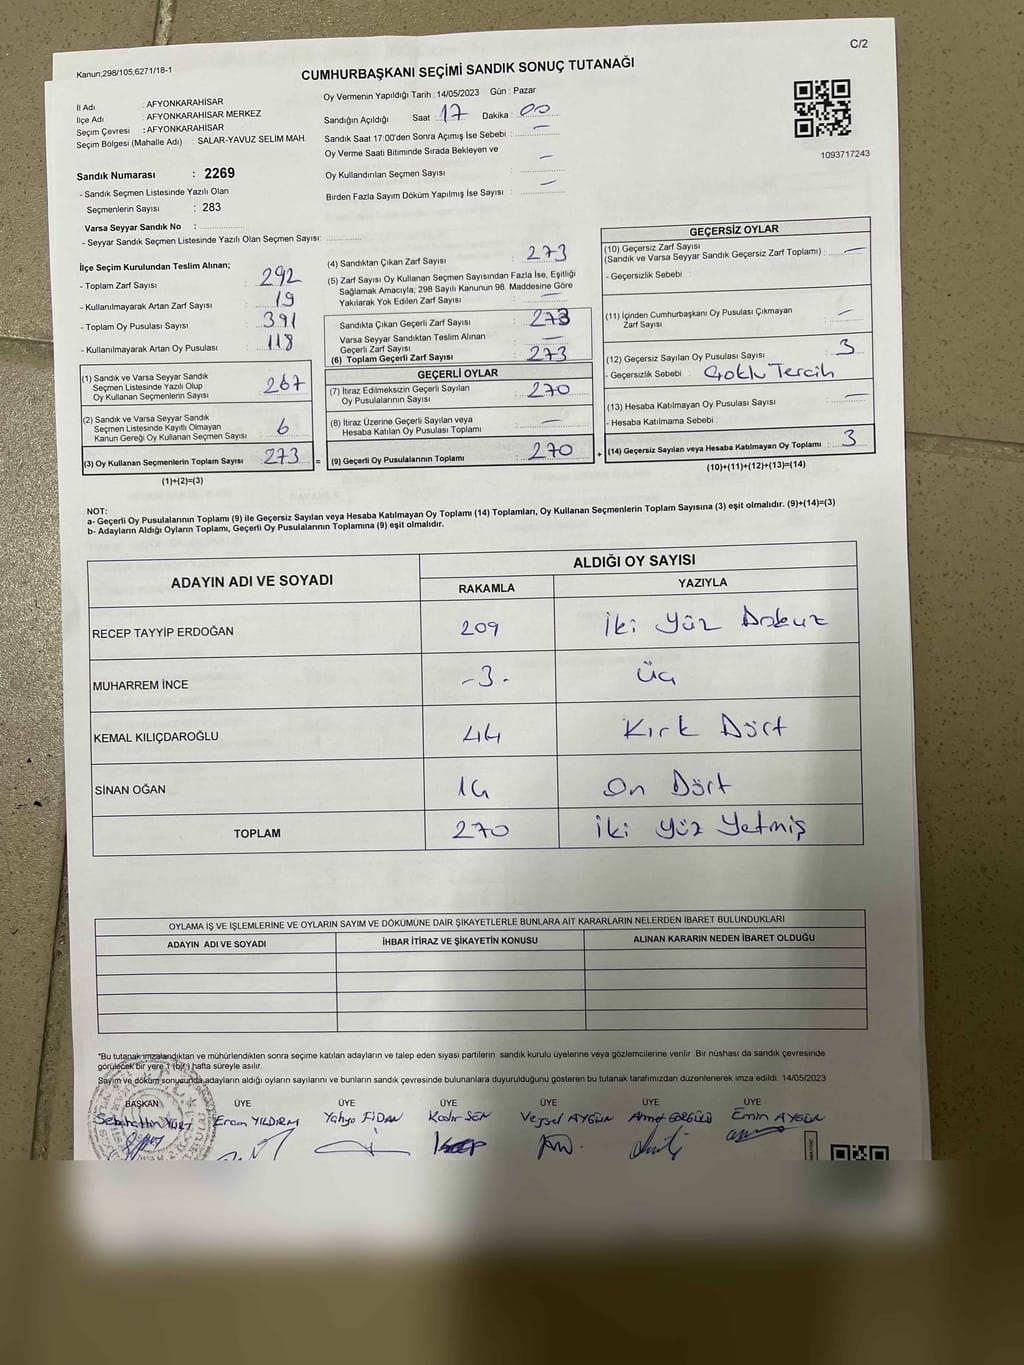 C/2
Kanun;298/105,6271/18-1
CUMHURBAŞKANI SEÇİMİ SANDIK SONUÇ TUTANAĞI
İl Adı : AFYONKARAHİSAR
İlçe Adı : AFYONKARAHİSAR MERKEZ
Seçim Çevresi : AFYONKARAHİSAR
Seçim Bölgesi (Mahalle Adı) : SALAR-YAVUZ SELİM MAH.
Oy Vermenin Yapıldığı Tarih : 14/05/2023 Gün : Pazar
Sandığın Açıldığı Saat : 17 Dakika : 00
Sandık Saat 17:00'den Sonra Açımış İse Sebebi : —
Oy Verme Saati Bitiminde Sırada Bekleyen ve
Oy Kullandırılan Seçmen Sayısı : —
Birden Fazla Sayım Döküm Yapılmış İse Sayısı : —
1093717243
Sandık Numarası : 2269
- Sandık Seçmen Listesinde Yazılı Olan
Seçmenlerin Sayısı : 283
Varsa Seyyar Sandık No :
- Seyyar Sandık Seçmen Listesinde Yazılı Olan Seçmen Sayısı:
İlçe Seçim Kurulundan Teslim Alınan;
- Toplam Zarf Sayısı : 292
- Kullanılmayarak Artan Zarf Sayısı : 19
- Toplam Oy Pusulası Sayısı : 391
- Kullanılmayarak Artan Oy Pusulası : 118
(1) Sandık ve Varsa Seyyar Sandık
Seçmen Listesinde Yazılı Olup
Oy Kullanan Seçmenlerin Sayısı : 267
(2) Sandık ve Varsa Seyyar Sandık
Seçmen Listesinde Kayıtlı Olmayan
Kanun Gereği Oy Kullanan Seçmen Sayısı : 6
(3) Oy Kullanan Seçmenlerin Toplam Sayısı : 273 =
(1)+(2)=(3)
(4) Sandıktan Çıkan Zarf Sayısı : 273
(5) Zarf Sayısı Oy Kullanan Seçmen Sayısından Fazla İse, Eşitliği
Sağlamak Amacıyla; 298 Sayılı Kanunun 98. Maddesine Göre
Yakılarak Yok Edilen Zarf Sayısı : —
Sandıkta Çıkan Geçerli Zarf Sayısı : 273
Varsa Seyyar Sandıktan Teslim Alınan
Geçerli Zarf Sayısı : —
(6) Toplam Geçerli Zarf Sayısı : 273
GEÇERLİ OYLAR
(7) İtiraz Edilmeksizin Geçerli Sayılan
Oy Pusulalarının Sayısı : 270
(8) İtiraz Üzerine Geçerli Sayılan veya
Hesaba Katılan Oy Pusulası Toplamı : —
(9) Geçerli Oy Pusulalarının Toplamı : 270 +
GEÇERSİZ OYLAR
(10) Geçersiz Zarf Sayısı
(Sandık ve Varsa Seyyar Sandık Geçersiz Zarf Toplamı) : —
- Geçersizlik Sebebi :
(11) İçinden Cumhurbaşkanı Oy Pusulası Çıkmayan
Zarf Sayısı : —
(12) Geçersiz Sayılan Oy Pusulası Sayısı : 3
- Geçersizlik Sebebi : Çoklu Tercih
(13) Hesaba Katılmayan Oy Pusulası Sayısı : —
- Hesaba Katılmama Sebebi :
(14) Geçersiz Sayılan veya Hesaba Katılmayan Oy Toplamı : 3
(10)+(11)+(12)+(13)=(14)
NOT:
a- Geçerli Oy Pusulalarının Toplamı (9) ile Geçersiz Sayılan veya Hesaba Katılmayan Oy Toplamı (14) Toplamları, Oy Kullanan Seçmenlerin Toplam Sayısına (3) eşit olmalıdır. (9)+(14)=(3)
b- Adayların Aldığı Oyların Toplamı, Geçerli Oy Pusulalarının Toplamına (9) eşit olmalıdır.
ADAYIN ADI VE SOYADI
ALDIĞI OY SAYISI
RAKAMLA YAZIYLA
RECEP TAYYİP ERDOĞAN 209 İki Yüz Dokuz
MUHARREM İNCE -3- Üç
KEMAL KILIÇDAROĞLU 44 Kırk Dört
SİNAN OĞAN 14 On Dört
TOPLAM 270 İki Yüz Yetmiş
OYLAMA İŞ VE İŞLEMLERİNE VE OYLARIN SAYIM VE DÖKÜMÜNE DAİR ŞİKAYETLERLE BUNLARA AİT KARARLARIN NELERDEN İBARET BULUNDUKLARI
ADAYIN ADI VE SOYADI İHBAR İTİRAZ VE ŞİKAYETİN KONUSU ALINAN KARARIN NEDEN İBARET OLDUĞU
*Bu tutanak imzalandıktan ve mühürlendikten sonra seçime katılan adayların ve talep eden siyasi partilerin sandık kurulu üyelerine veya gözlemcilerine verilir .Bir nüshası da sandık çevresinde
görülecek bir yere 1 (bir) hafta süreyle asılır.
Sayım ve döküm sonucunda adayların aldığı oyların sayılarını ve bunların sandık çevresinde bulunanlara duyurulduğunu gösteren bu tutanak tarafımızdan düzenlenerek imza edildi. 14/05/2023
BAŞKAN ÜYE ÜYE ÜYE ÜYE ÜYE ÜYE
Sebahattin YURT Ercan YILDIRIM Yahya FİDAN Kadir ŞEN Veysel AYGÜN Ahmet Emin AYGÜN